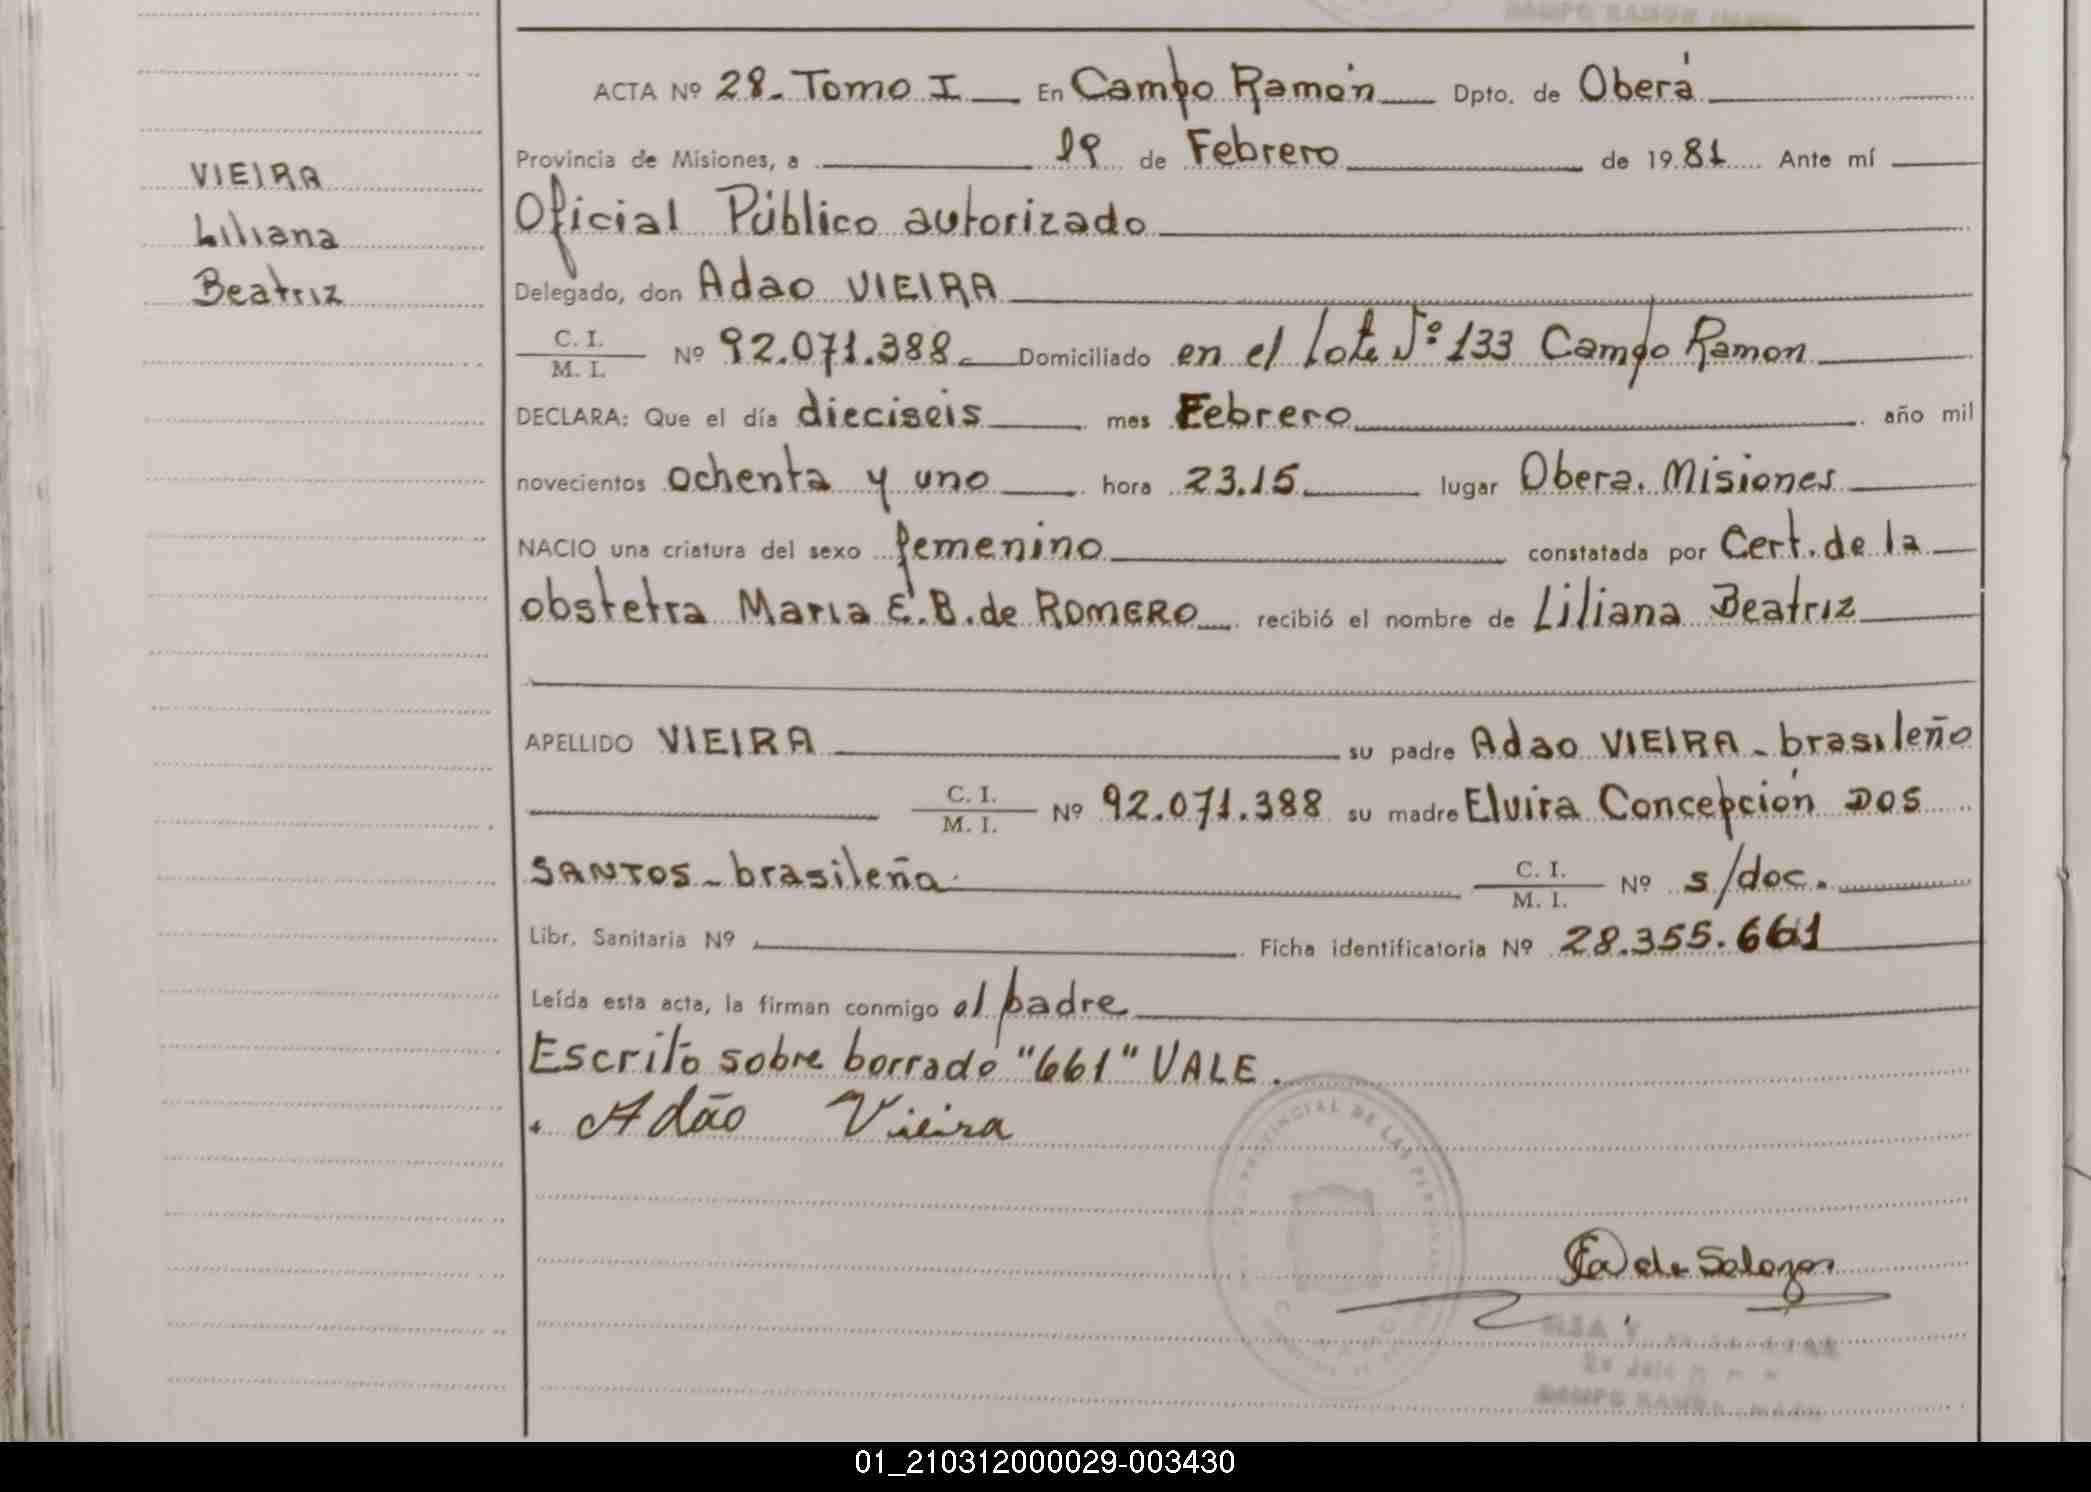 VIEIRA
Liliana
Beatriz
ACTA Nº 28. Tomo I En Campo Ramón Dpto. de Oberá
Provincia de Misiones, a 19 de Febrero de 1981 Ante mí
Oficial Público autorizado
Delegado, don Adao VIEIRA
C. I.
M. I.
Nº 92.071.388. Domiciliado en el lote Nº 133 Campo Ramon
DECLARA: Que el día dieciseis mes Febrero año mil
novecientos ochenta y uno hora 23.15 lugar Obera. Misiones
NACIO una criatura del sexo femenino constatada por Cert. de la
obstetra Maria E. B. de ROMERO recibió el nombre de Liliana Beatriz
APELLIDO VIEIRA su padre Adao VIEIRA - brasileño
C. I.
M. I.
Nº 92.071.388 su madre Elvira Concepción DOS
SANTOS - brasileña
C. I.
M. I.
Nº s/doc.
Libr. Sanitaria Nº Ficha identificatoria Nº 28.355.661
Leída esta acta, la firman conmigo el padre
Escrito sobre borrado "661" VALE.
Adão Vieira
PROVINCIAL DE LAS PERSONAS
de Salazar
CAMPO RAMON
01_210312000029-003430